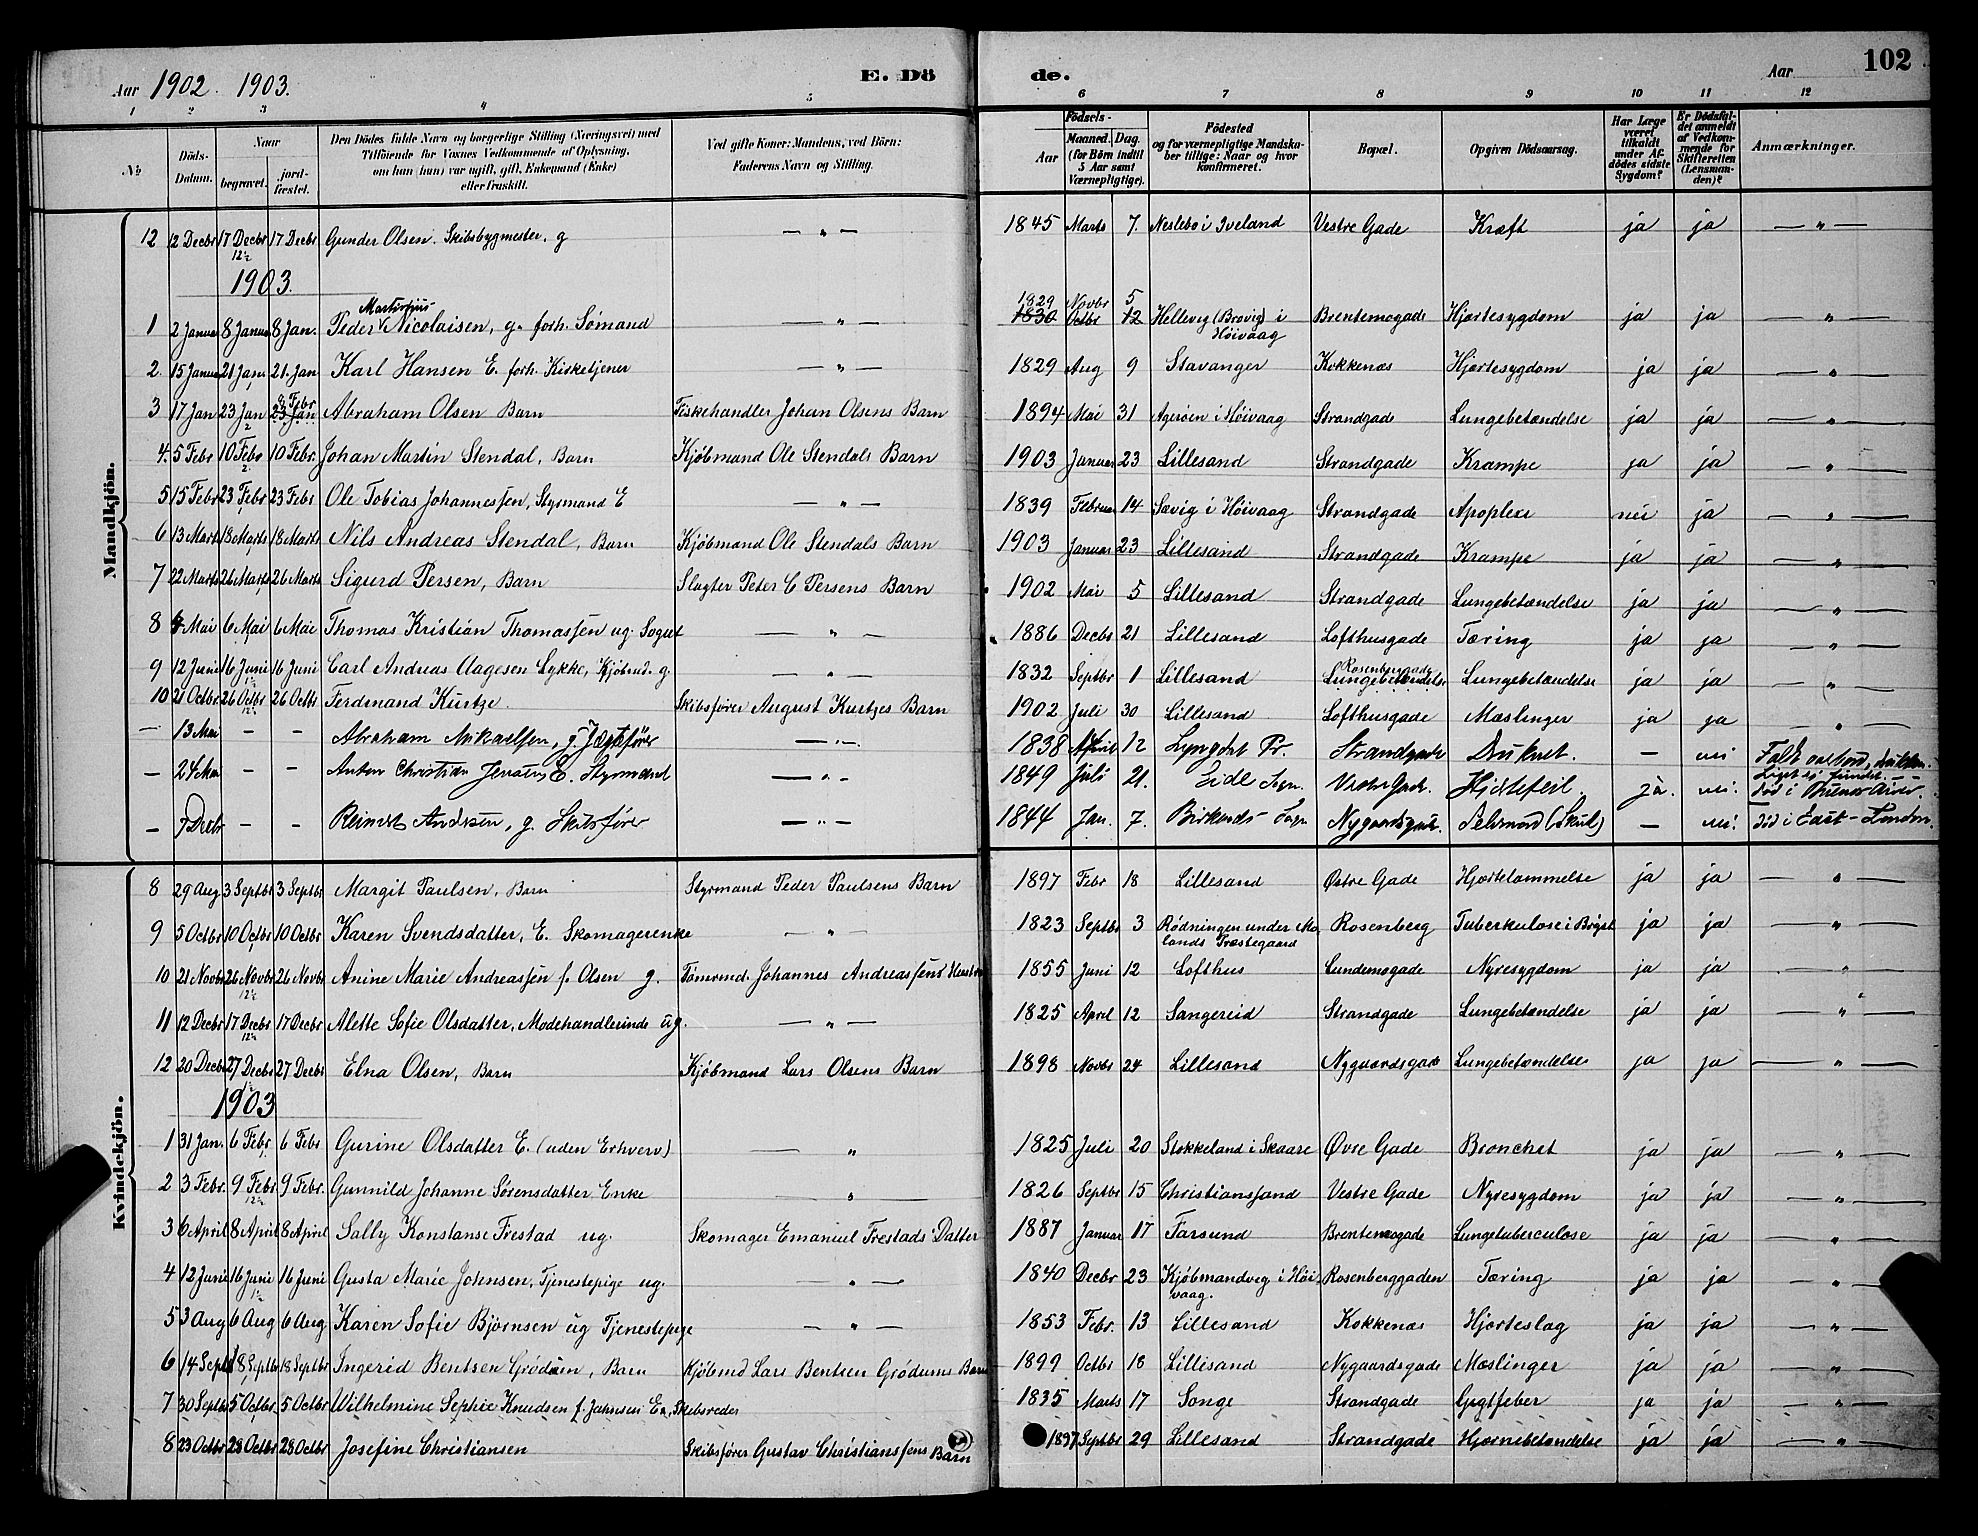 Aar 1902. 1903. E. Dö de. Aar 102
1 2 3 4 5 6 7 8 9 10 11 12
№ Döds-Datum. Naar begravet. jord-fæstet. Den Dödes fulde Navn og borgerlige Stilling (Næringsvei) med Tilföiende for Voxnes Vedkommende af Oplysning, om han (hun) var ugift, gift, Enkemand (Enke) eller fraskilt. Ved gifte Koner: Mandens, ved Börn: Faderens Navn og Stilling. Födsels- Aar Maaned. Dag. (for Börn indtil 5 Aar samt Værnepligtige). Födested og for værnepligtige Mandskaber tillige: Naar og hvor konfirmeret. Bopæl. Opgiven Dödsaarsag. Har Læge været tilkaldt under Afdödes sidste Sygdom? Er Dödsfaldet anmeldt af Vedkommende for Skifteretten (Lensmanden)? Anmærkninger.
Mandkjön.
12 12 Decbr 17 Decbr 12½ 17 Decbr Gunder Olsen. Skibsbygmester. g — „ — 1845 Marts 7. Neslebø i Iveland Vestre Gade Kræft ja ja — „ —
1903.
1 2 Januar 8 Januar 8 Jan. Peder Martinius Nicolaisen, g. forh. Sømand — „ — 1829 1830 Novbr Octbr 5 12 Hellevig (Brovig) i Høivaag Brentemogade Hjertesygdom ja ja — „ —
2. 15 Januar 21 Jan 21. Jan Karl Hansen E. forh. Kirketjener — „ — 1829 Aug 9 Stavanger Kokkenæs Hjertesygdom ja ja — „ —
3 17 Jan 23 Jan 23 Jan Febr Abraham Olsen Barn Fiskehandler Johan Olsens Barn 1894 Mai 31 Agerøen i Høivaag Strandgade Lungebetændelse ja ja — „ —
4. 5 Febr 10 Febr 10 Febr. Johan Martin Stendal, Barn Kjøbmand Ole Stendals Barn 1903 Januar 23 Lillesand Strandgade Krampe ja ja — „ —
5 15 Febr 23 Febr 23 Febr Ole Tobias Johannessen, Styrmand E — „ — 1839 Februar 14 Sævig i Høivaag Strandgade Apoplexi nei ja — „ —
6 13 Marts 18 Marts 18 Marts Nils Andreas Stendal, Barn Kjøbmand Ole Stendals Barn 1903 Januar 23 Lillesand Strandgade Krampe ja ja — „ —
7 22 Marts 26 Marts 26 Marts Sigurd Persen, Barn Slagter Peter C Persens Barn 1902 Mai 5 Lillesand Strandgade Lungebetændelse ja ja — „ —
8 Mai 6 Mai 6 Mai Thomas Kristian Thomassen ug. — „ — 1886 Decbr 21 Lillesand Lofthusgade Tæring ja ja — „ —
9 12 Juni 16 Juni 16 Juni Carl Andreas Aagesen Lykke, Kjøbmd. g. — „ — 1832 Septbr 1 Lillesand Rosenberggade Lungebetændelse Lungebetændelse ja ja — „ —
10 21 Octbr 26 Octbr 12½ 26 Octbr Ferdinand Kurtze. Skibsfører August Kurtzes Barn 1902 Juli 30 Lillesand Lofthusgade Mæslinger ja ja — „ —
— 13 Mai — — Abraham Mikaelsen, g Jægtefører — „ — 1838 April 12 Lyngdal Pr. Strandgade Druknet. — nei Faldt overbord, Liget ei fundet.
— 24 Mai — — Anton Christian Jensen, E. Styrmand — „ — 1849 Juli 21. Eide Sogn. Vestre Gade Hjertefeil. ja. nei. død i Buenos Aires.
— 7 Decbr — — Reinert Andersen, g. Skibsfører — „ — 1844 Jan. 7. Birkenes Sogn Nygaardsgade. Selvmord (Skud) — nei. død i East-London.
Kvindekjön.
8 29 Aug 3 Septbr 3 Septbr Margit Paulsen, Barn Styrmand Peder Paulsens Barn 1897 Febr 18 Lillesand Østre Gade Hjertelammelse ja ja — „ —
9 5 Octbr 10 Octbr 10 Octbr Karen Svendsdatter, E. Skomagerenke — „ — 1823 Septbr 3 Rødningen under Molands Præstegaard Rosenberg Tuberkulose i Bryst ja ja — „ —
10 21 Novbr 26 Novbr 12½ 26 Novbr Anine Marie Andreassen f. Olsen g. Tømrmd. Johannes Andreassens Hustru 1855 Juni 12 Lofthus Lundemogade Nyresygdom ja ja „
11 12 Decbr 17 Decbr 12½ 17 Decbr Alette Sofie Olsdatter, Modehandlerinde ug. — „ — 1825 April 12 Sangereid Strandgade Lungebetændelse ja ja — „ —
12 20 Decbr 27 Decbr 1½ 27 Decbr Elna Olsen, Barn Kjøbmand Lars Olsens Barn 1898 Novbr 24 Lillesand Nygaardsgade Lungebetændelse ja ja — „ —
1903
1 31 Jan. 6 Febr. 6 Febr Gurine Olsdatter E. (uden Erhverv) — „ 1825 Juli 20 Stokkeland i Skaare Øvre Gade Bronchit ja ja — „ —
2 3 Febr. 9 Febr 12½ 9 Febr. Gunnild Johanne Sørensdatter Enke „ — 1826 Septbr 15 Christianssand Vestre Gade Nyresygdom ja ja — „ —
3 6 April 8 April 8 April Sally Konstanse Frestad ug. Skomager Emanuel Frestads Datter 1887 Januar 17 Farsund Brentemogade Lungetuberculose ja ja — „ —
4 12 Juni 16 Juni 1½ 16 Juni Gusta Marie Jotensen, Tjenestepige ug. „ — 1840 Decbr 23 Kjøbmandvig i Høivaag. Rosenberggaden Tæring ja ja — „ —
5 3 Aug 6 Aug 6 Aug Karen Sofie Bjørnsen ug Tjenestepige — „ — 1853 Febr. 13 Lillesand Kokkenæs Hjerteslag ja ja — „ —
6 14 Septbr 18 Septbr 18 Septbr Ingerid Bentsen Grødum, Barn Kjøbmd Lars Bentsen Grødums Barn 1899 Octbr 18 Lillesand Nygaardsgade Mæslinger ja ja — „ —
7 30 Septbr 5 Octbr. 5 Octbr Wilhelmine Sophie Knudsen f. Jahnsen En. Skibsreder 1835 Marts 17 Songe Strandgade Gigtfeber ja ja — „ —
8 23 Octbr 28 Octbr 28 Octbr Josefine Christiansen Skibsfører Gustav Christianssens Barn 1897 Septbr 29 Lillesand Strandgade Hjernebetændelse ja ja — „ —